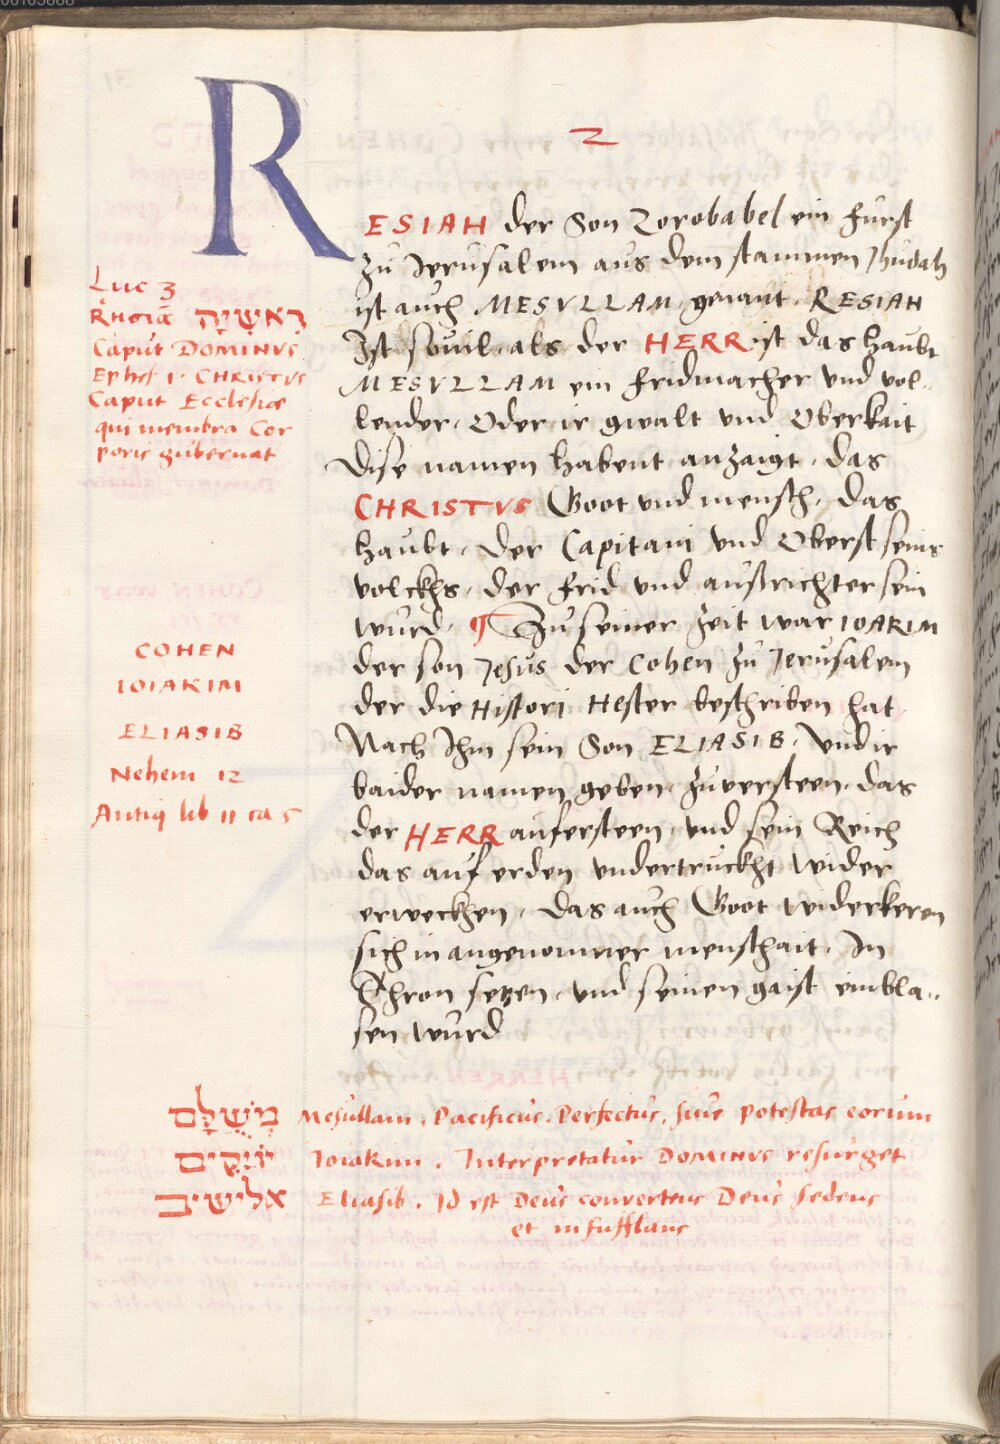 2
RESIAH der Son Zorobabel ein fürst
zu Jerusalem aus dem stammen Jhudah
ist auch MESVLLAM genant. RESIAH
Ist souil als der HERR ist das haubt
MESVLLAM ein fridmacher vnd vol-
lender, Oder ir gwalt vnd Oberkait
Dise namen habent anzaigt, das
CHRISTVS Goot vnd mensch, das
haubt, der Capitani vnd Oberst seins
volckhs, der frid vnd aussrichter sein
wurd. ¶ Zu seiner zeit war IOAKIM
der son Jesus der Cohen zu Jerusalem
der die Histori Hester beschriben hat
Nach Ihm sein Son ELIASIB, Vnd ir
baider namen geben zuuersteen, das
der HERR auffersteen, vnd sein Reich
das auf erden vndertruckht wider
erweckhen, das auch Goot widerkeren
sich in angenommer menschait, In
Thron setzen, vnd seinen gaist einbla-
sen wurd
Luc 3
Rhesia רֵאשִׁיָה
Caput DOMINVS
Ephes 1. CHRISTVS
Caput Ecclesiæ
qui membra Cor
poris gubernat
COHEN
IOIAKIM
ELIASIB
Nehem 12
Antiq lib 11 ca 5
מְשֻׁלָּם Mesullam. Pacificus. Perfectus, siue potestas eorum
יוֹיָקִים Ioiakim. Interpretatur DOMINVS resurget
אלישיב Eliasib. Id est Deus conuertens Deus sedens
et insufflans